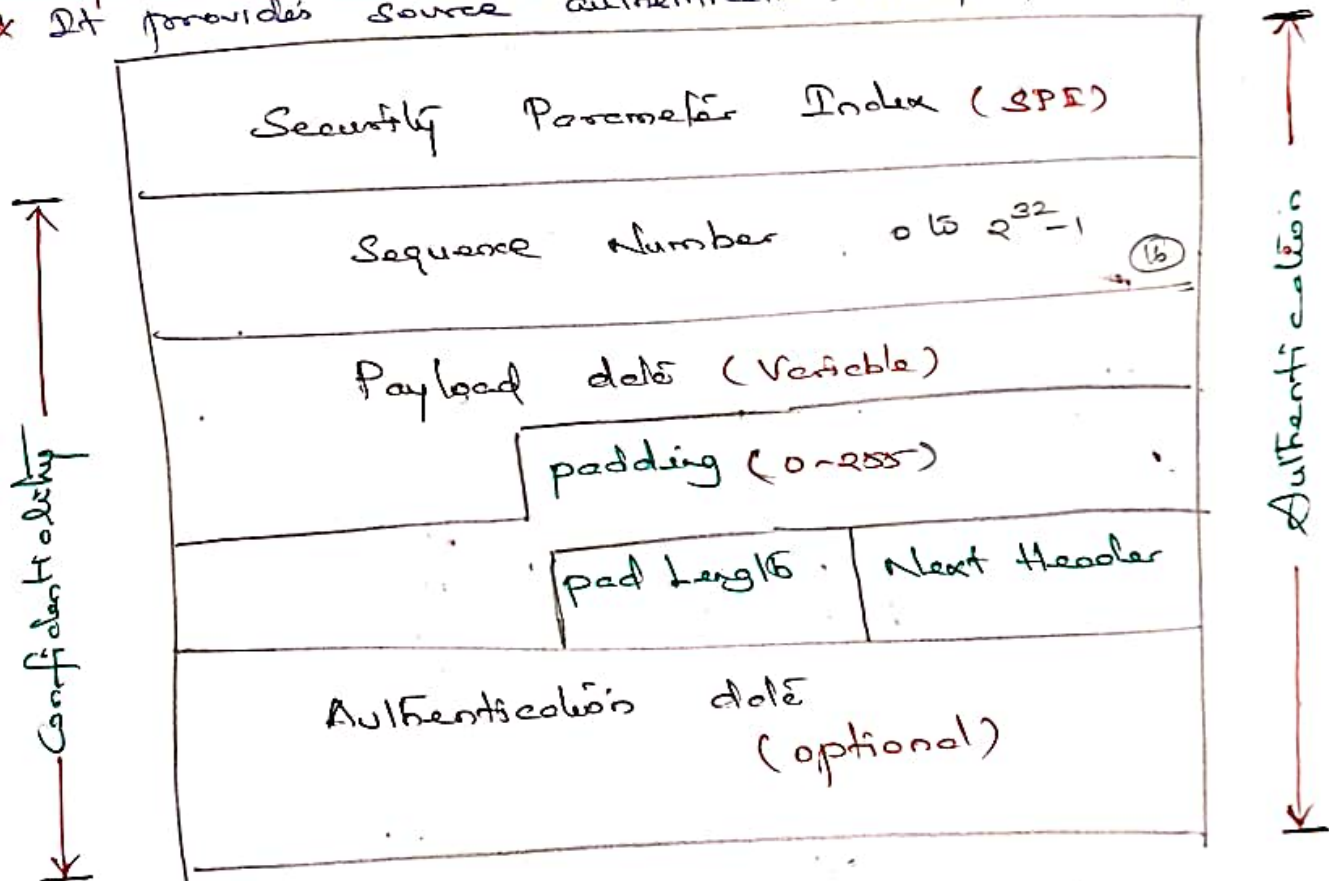 * It provides source
Security Parameter Index (SPI)
Sequence Number 0 to 2^32-1
16
Payload data (Variable)
padding (0-255)
pad Length
Next Header
Authentication data
(optional)
Confidentiality
Authentication